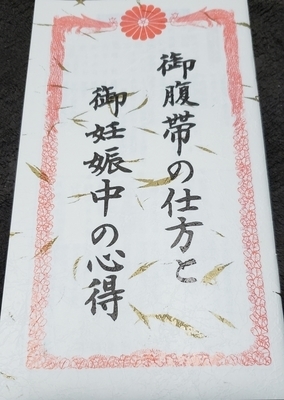 御腹帯の仕方と
御妊娠中の心得